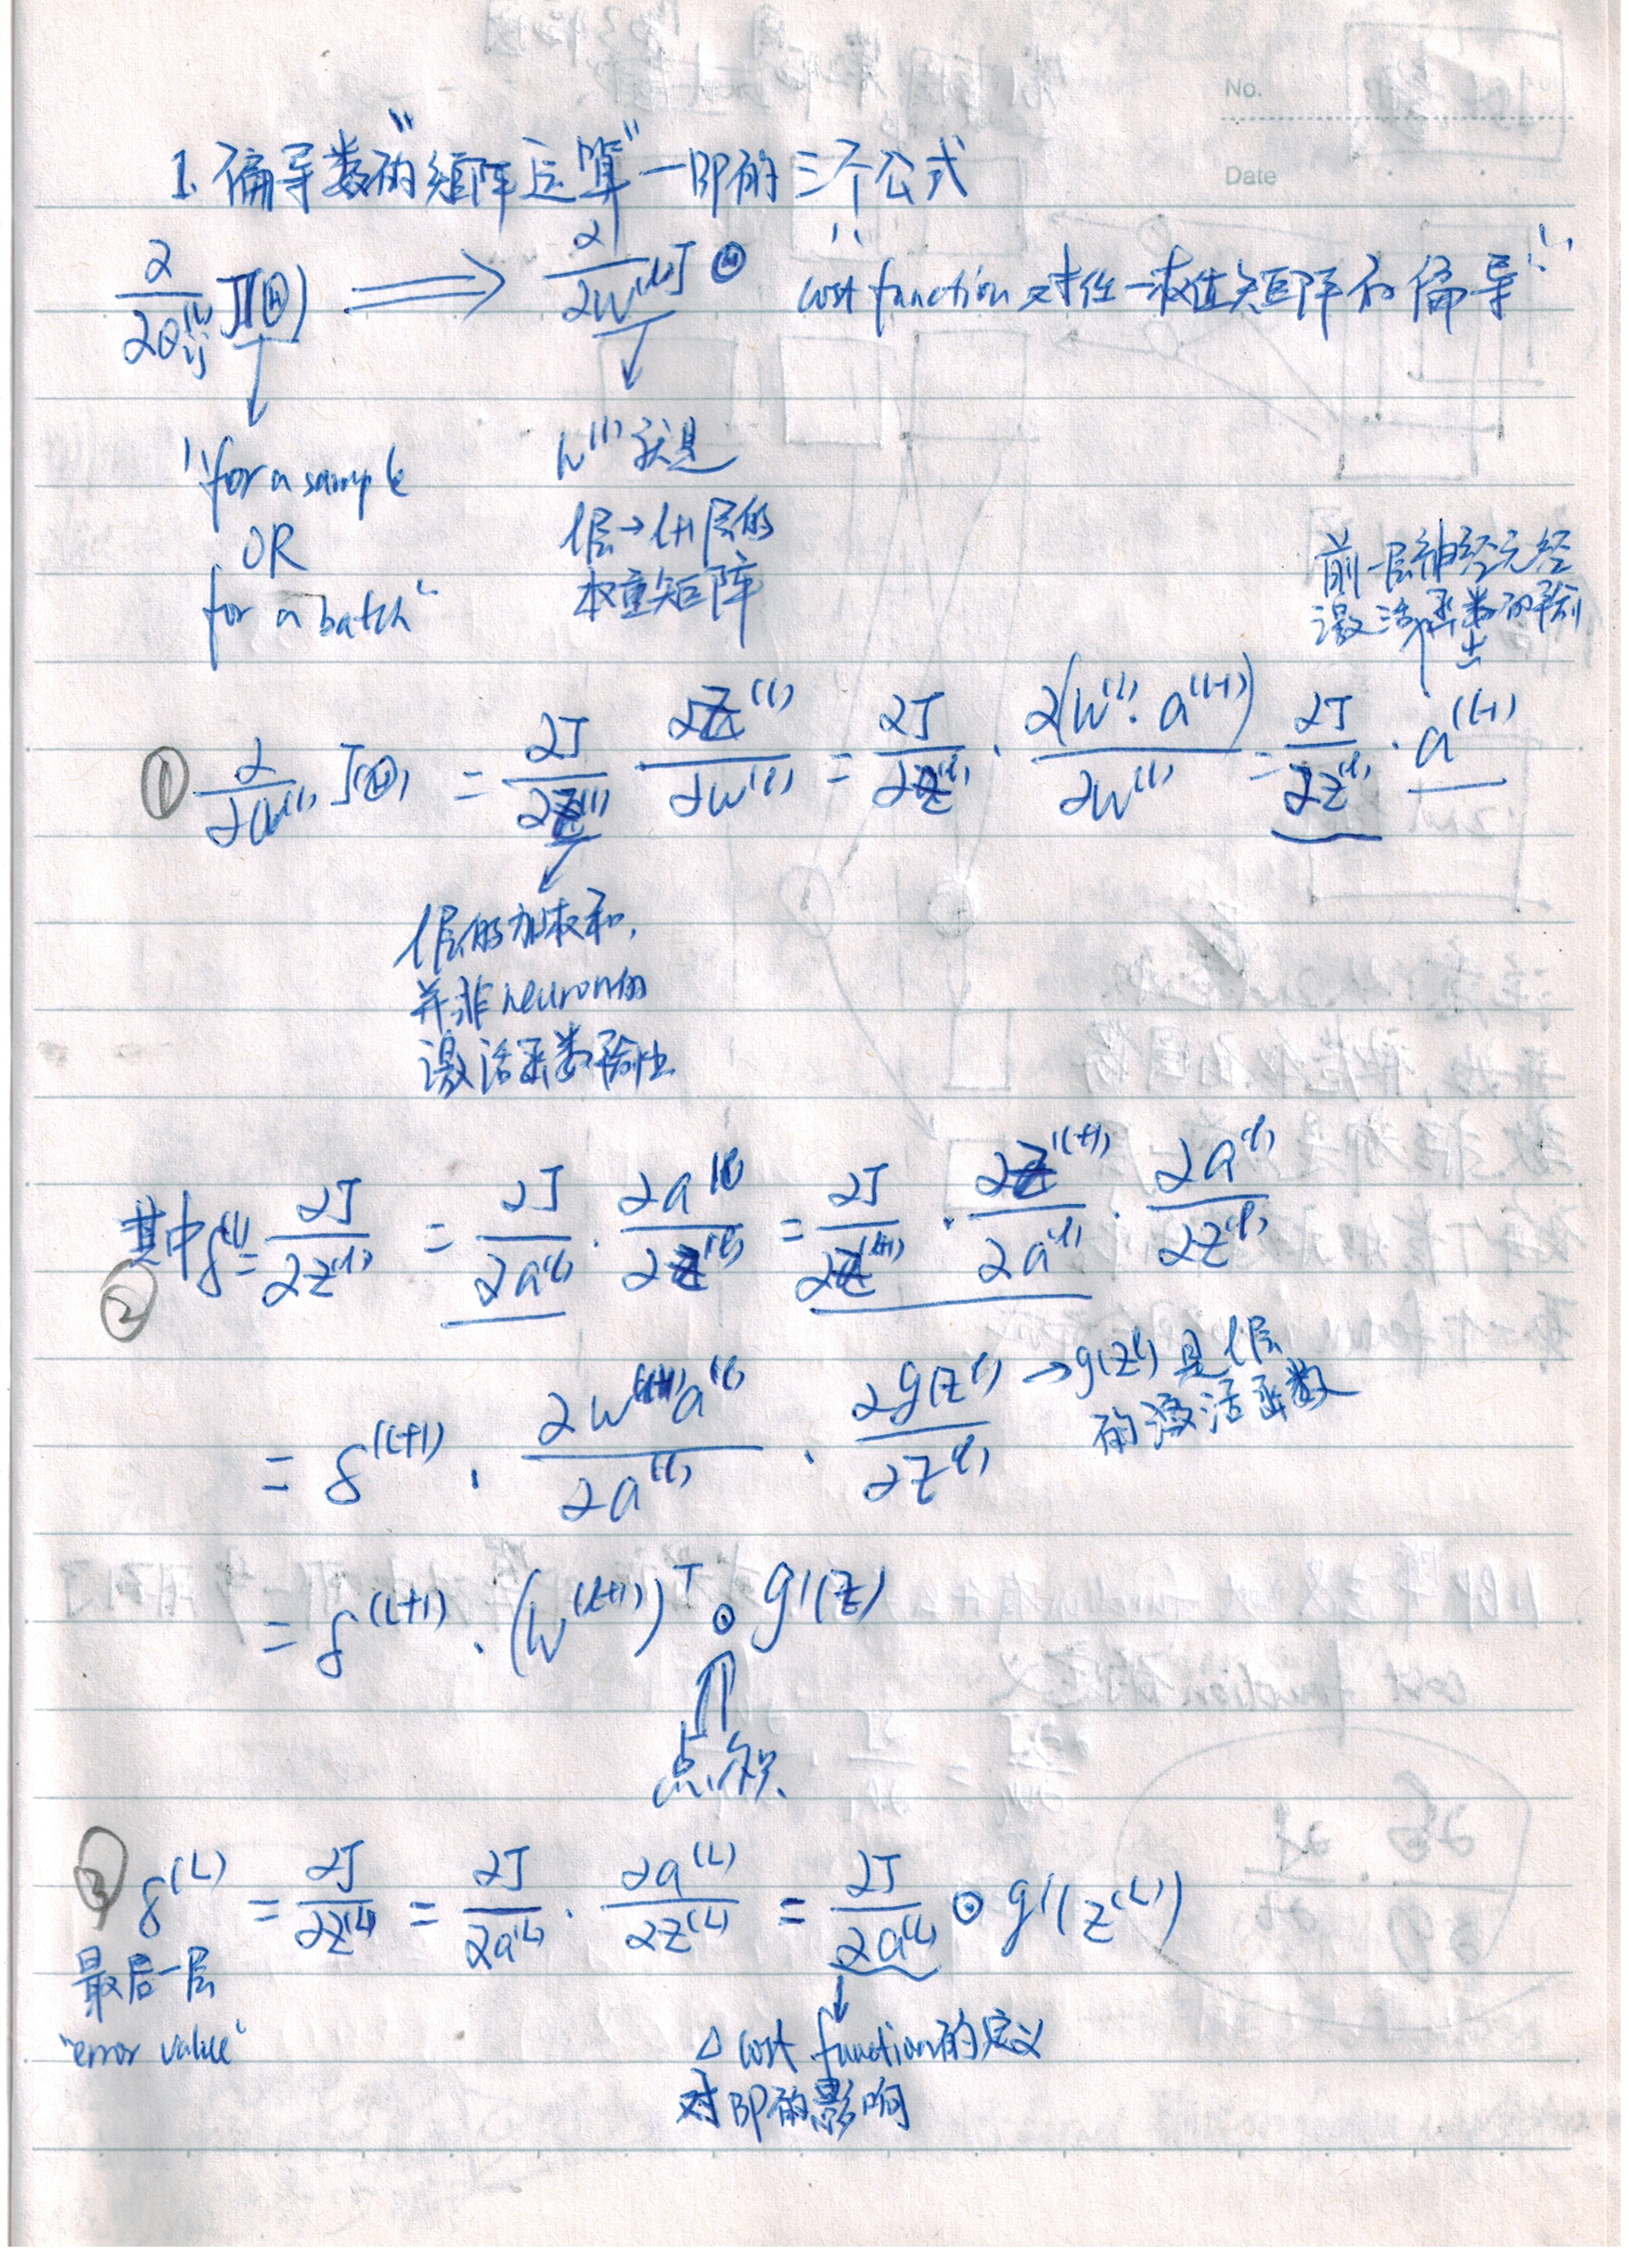 No.
Date
1. 偏导数的"矩阵运算"—BP的三个公式
∂/∂θij^(l) J(Θ) ⟹ ∂/∂W^(l) J(Θ) "cost function 对任一权值矩阵的偏导"
"for a sample
OR
for a batch"
W^(l) 就是
l层→l+1层的
权重矩阵
前一层神经元经
激活函数的输出
① ∂/∂W^(l) J(Θ) = ∂J/∂Z^(l) · ∂Z^(l)/∂W^(l) = ∂J/∂Z^(l) · ∂(W^(l) · a^(l-1))/∂W^(l) = ∂J/∂Z^(l) · a^(l-1)
l层的加权和,
并非neuron的
激活函数输出
② 其中 δ^(l) = ∂J/∂Z^(l) = ∂J/∂a^(l) · ∂a^(l)/∂Z^(l) = ∂J/∂Z^(l+1) · ∂Z^(l+1)/∂a^(l) · ∂a^(l)/∂Z^(l)
= δ^(l+1) · ∂W^(l+1)a^(l)/∂a^(l) · ∂g(Z^(l))/∂Z^(l) → g(Z^(l)) 是l层
的激活函数
= δ^(l+1) · (W^(l+1))^T ⊙ g'(Z)
点乘.
③ δ^(L) = ∂J/∂Z^(L) = ∂J/∂a^(L) · ∂a^(L)/∂Z^(L) = ∂J/∂a^(L) ⊙ g'(Z^(L))
最后一层
"error value"
△ cost function的定义
对BP的影响